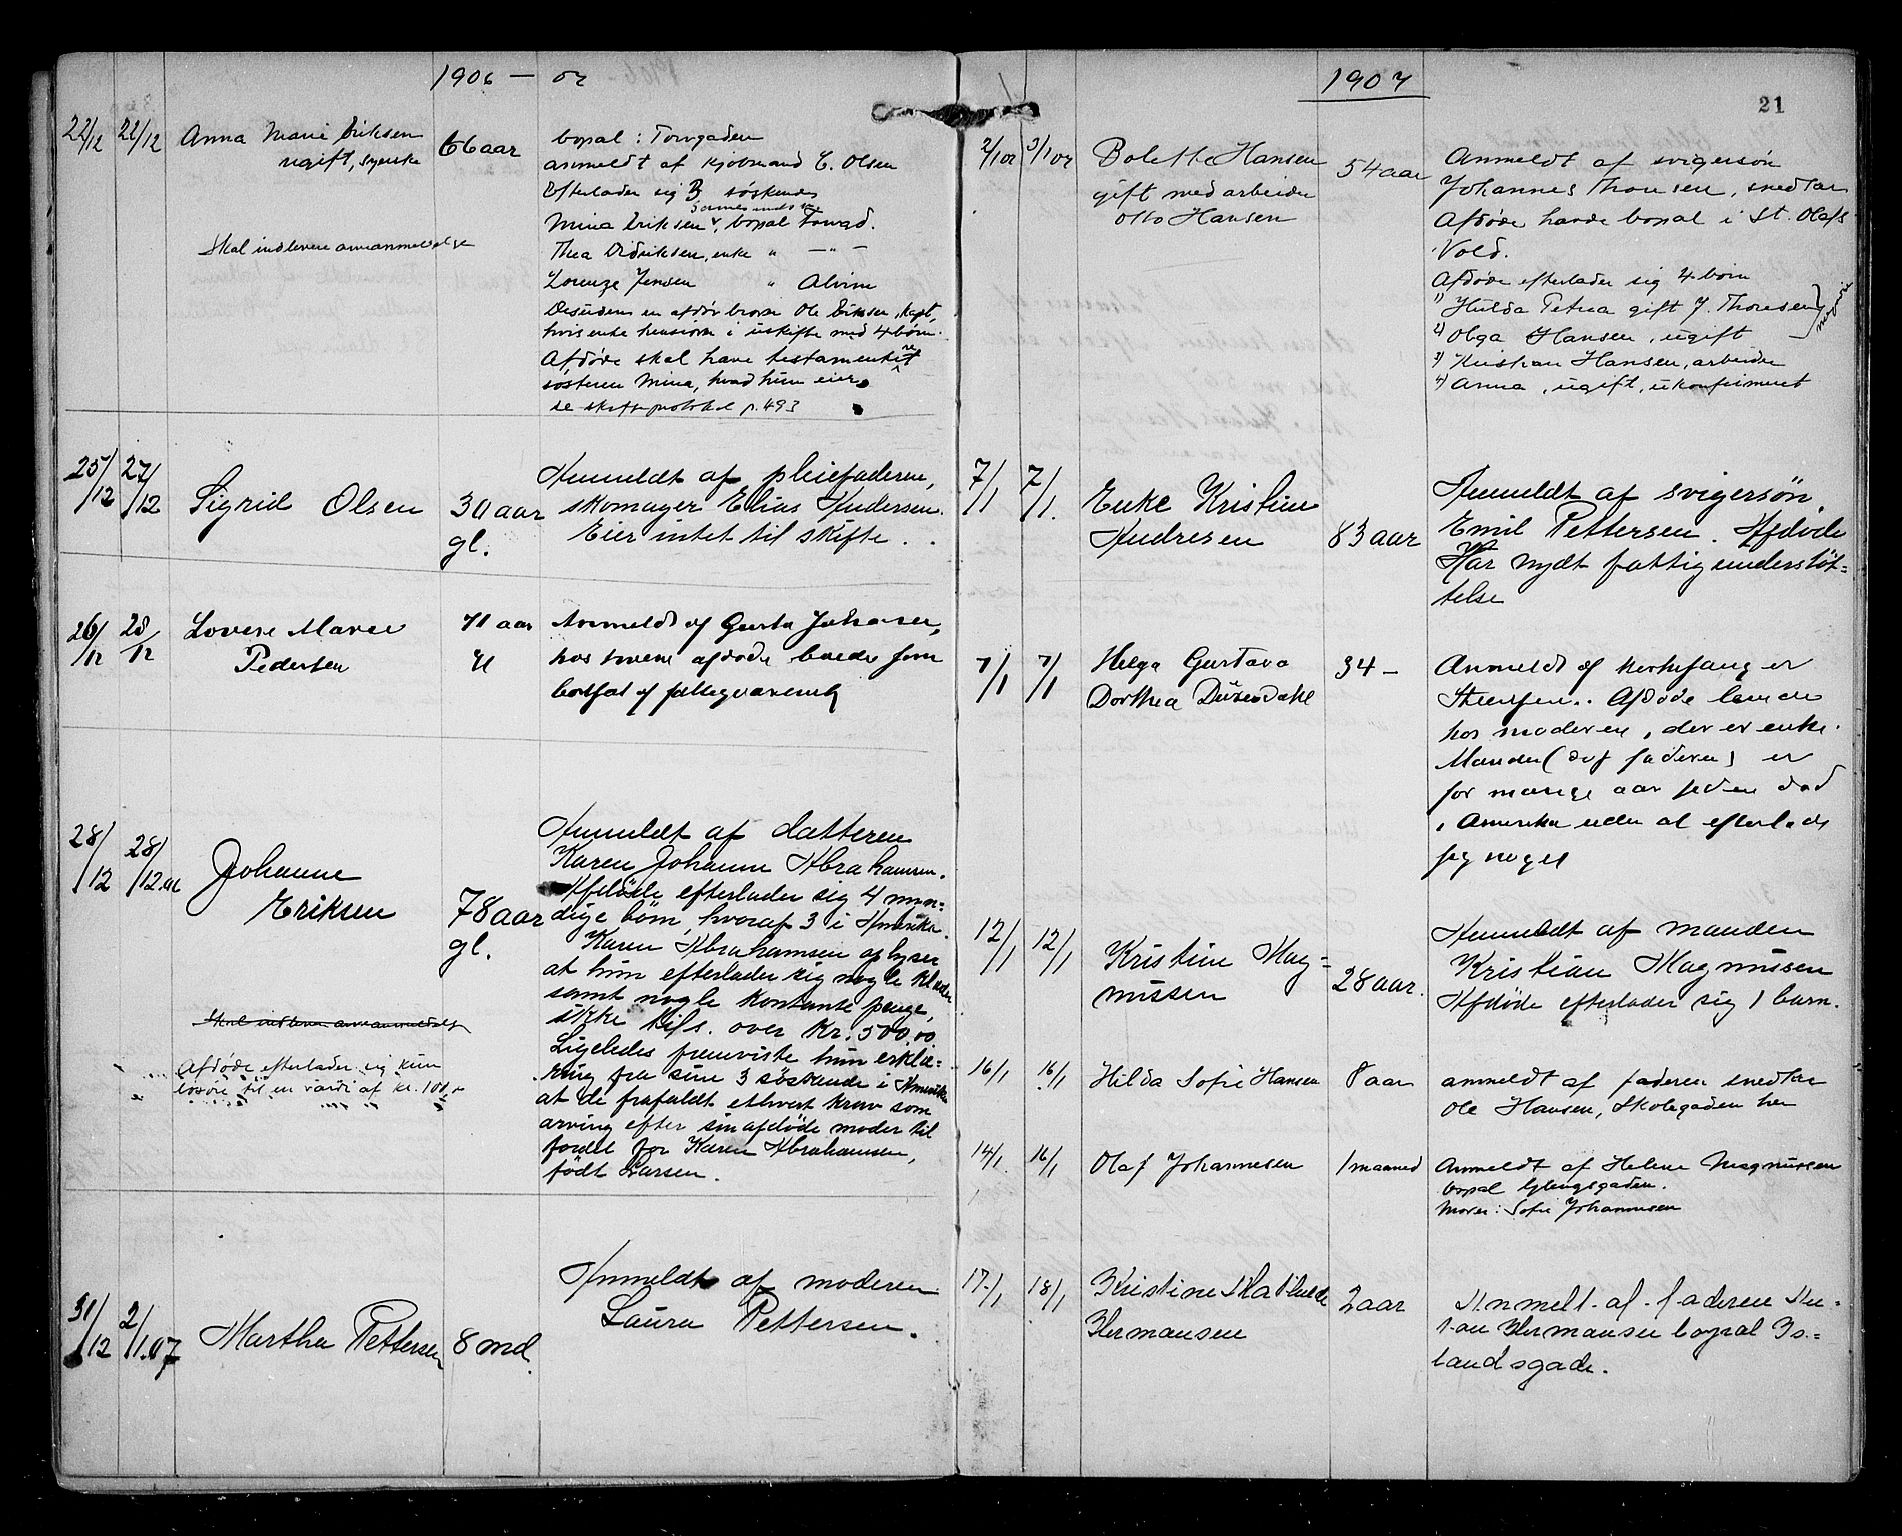 1906 — 07
22/12 22/12 Anna Marie Eriksen 66 aar
ugift, syerske
Skal indlevere arveanmeldelse
bopal: Torvgaden
anmeldt af kjøbmand E. Olsen
Efterlader sig 3 søskende
Mina Eriksen, bopal Torvgd.
Thea Didriksen, enke " — " —
Lorenze Jensen " Alvim
Desuden en afdød broder Ole Eriksen, Kapt,
hvis enke hensidder i uskifte med 4 børn.
Afdøde skal have testamenteret
søsteren Mina, hvad hun eier.
se skifteprotokol p. 493
25/12 27/12 Sigrid Olsen 30 aar
gl.
Anmeldt af pleiefaderen,
skomager Elias Andersen.
Eier intet til skifte.
26/12 28/12 Lovise Marie 71 aar
Pedersen gl
Anmeldt af Gusta Johansen,
hos hvem afdøde boede som
bortsat af fattigvæsenet
28/12 28/12.06 Johanne
Eriksen 78 aar
gl.
Skal indlevere arveanmeldelse
Afdøde efterlader sig kun
løsøre til en værdi af kr. 100,-
Anmeldt af datteren
Karen Johanne Abrahamsen.
Afdøde efterlader sig 4 myn-
dige børn, hvoraf 3 i Amerika.
Karen Abrahamsen oplyser
at hun efterlader sig nogle klæder
samt nogle kontante penge,
ikke tils. over kr. 500.00.
Ligeledes fremviste hun erklæ-
ring fra sine 3 søskende i Amerika
at de frafaldt ethvert krav som
arving efter sin afdøde moder til
fordel for Karen Abrahamsen,
født Larsen.
31/12 2/1.07 Martha Pettersen 8 md.
Anmeldt af moderen
Laura Pettersen.
1907
21
2/1 07 3/1 07 Bolette Hansen 54 aar
gift med arbeider
Otto Hansen
Anmeldt af svigersøn
Johannes Thoresen, snedker
Afdøde havde bopal i St. Olafs
Vold.
Afdøde efterlader sig 4 børn
1) Hulda Petrea gift J. Thoresen
2) Olga Hansen, ugift
myndige
3) Kristian Hansen, arbeider
4) Anna, ugift, ukonfirmeret
7/1 7/1. Enke Kristine
Andresen 83 aar
Anmeldt af svigersøn,
Emil Pettersen. Afdøde
Har nydt fattigunderstøt-
telse
7/1 7/1 Helga Gustava 34 —
Dorthea
Anmeldt af kirkesanger
Steensen. Afdøde
hos moderen, der er enke.
Manden (døf faderen) er
for mange aar siden død
i Amerika uden at efterlade
sig noget
12/1 12/1 Kristine Mag-
nussen 28 aar.
Anmeldt af manden
Kristian Magnussen
Afdøde efterlader sig 1 barn.
16/1 16/1 Hilda Sofie Hansen 8 aar
anmeldt af faderen snedker
Ole Hansen, Skolegaden her
14/1. 16/1 Olaf Johannesen 1 maaned
Anmeldt af Helene Magnussen
bopal Glengsgaden.
Moder: Sofie Johannesen
17/1 18/1 Kristine Mathilde 2 aar
Hermansen
Anmelt. af. faderen An-
ton Hermansen bopal Is-
landsgade.